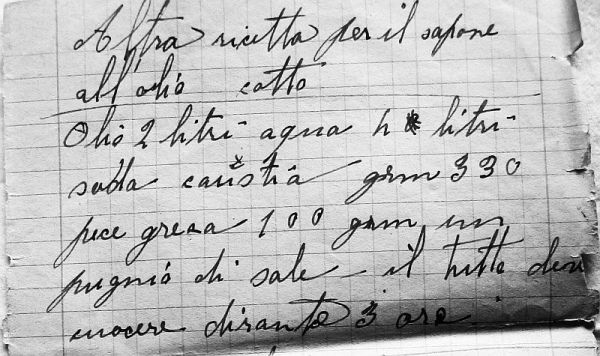 Altra ricetta per il sapone
all'olio cotto
Olio 2 litri aqua 4 litri
soda caustia grm 330
pece greca 100 grm un
pugnio di sale il tutto deve
cuocere dirante 3 ore